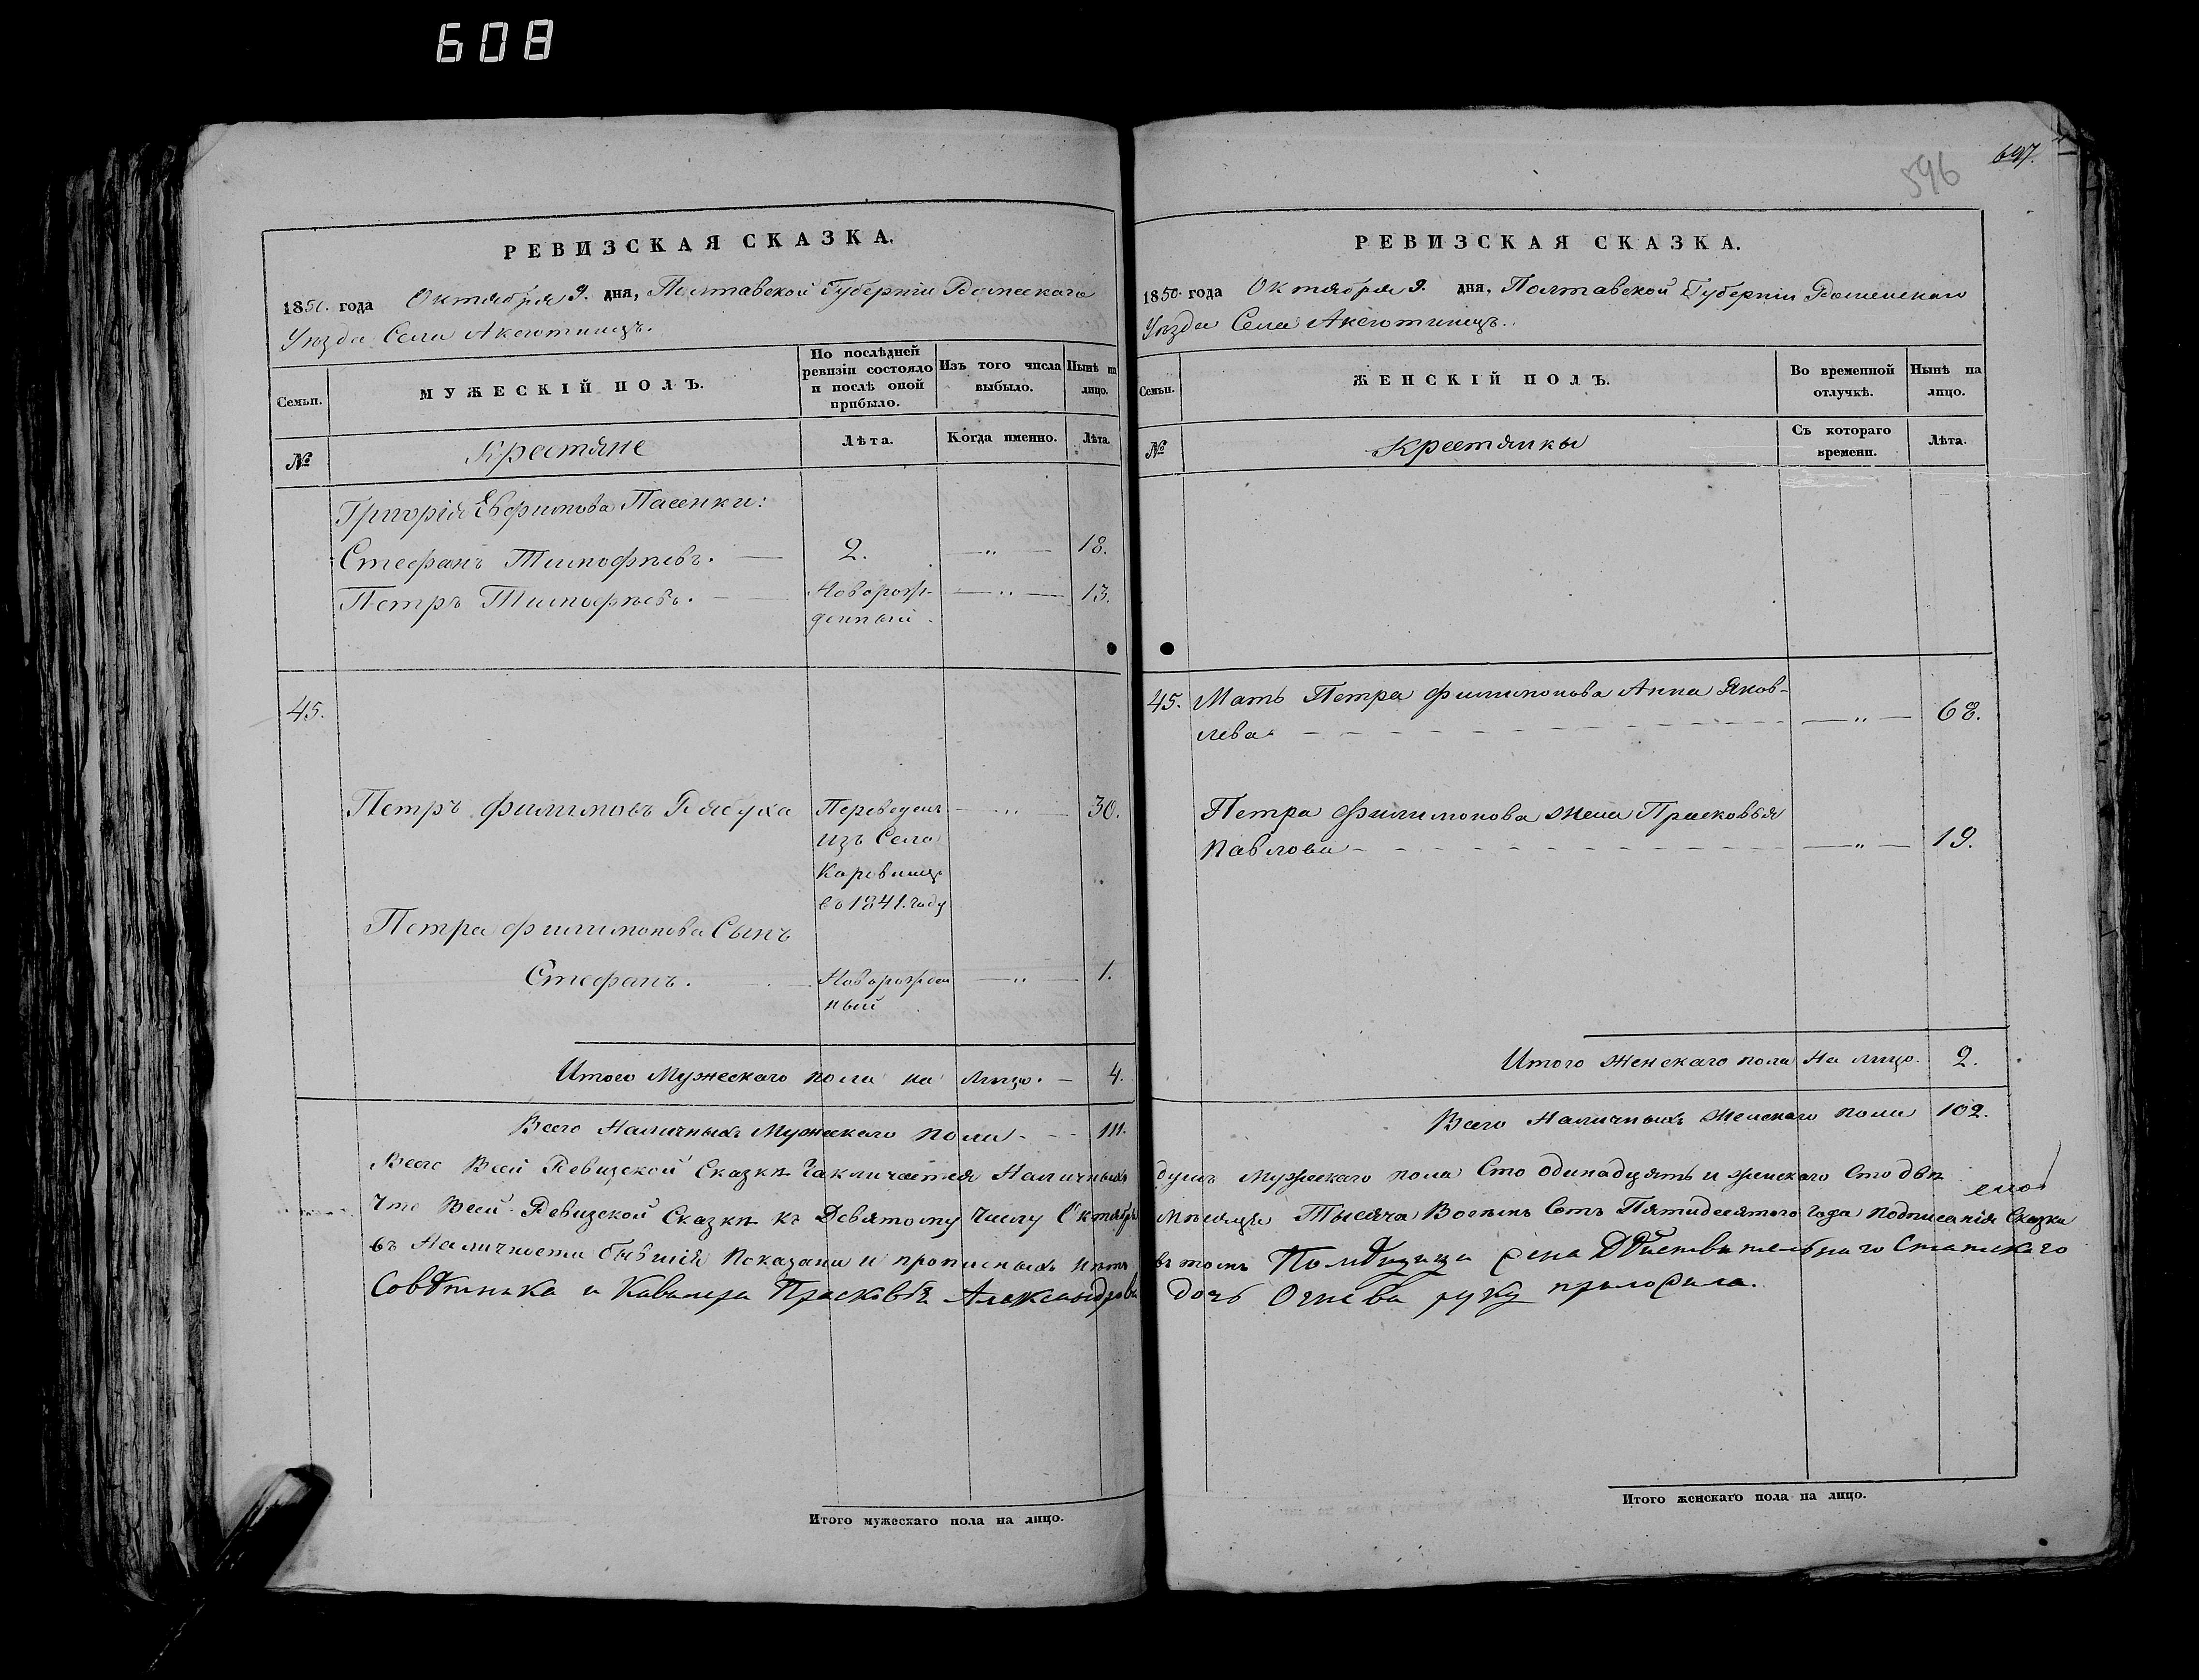 608
596
697.
РЕВИЗСКАЯ СКАЗКА.
1850. года Октября 9. дня, Полтавской Губерніи Роменскаго
Уезда Села Аксютинецъ.
Семьи.
МУЖЕСКІЙ ПОЛЪ.
По послѣдней ревизіи состояло и послѣ оной прибыло.
Изъ того числа выбыло.
Нынѣ на лицо.
№
Крестяне
Лѣта.
Когда именно.
Лѣта.
Григорія Евфимова Пасенки:
Стефанъ Тимофѣевъ. 2. — „ — 18.
Петръ Тимофѣевъ. Новорож- — „ — 13.
денный.
45.
Петръ Филимовъ Переведенъ — „ — 30.
изъ Села
въ 1841. году
Петра Филимонова Сынъ
Стефанъ. Новорожден — „ — 1.
ный
Итого Мужескаго пола на лицо. — 4.
Всего Наличныхъ Мужескаго пола - - - 111.
РЕВИЗСКАЯ СКАЗКА.
1850. года Октября 9. дня, Полтавской Губерніи Роменскаго
Уезда Села Аксютинецъ.
Семьи.
ЖЕНСКІЙ ПОЛЪ.
Во временной отлучкѣ.
Нынѣ на лицо.
№
Крестянки
Съ котораго времени.
Лѣта.
45. Мать Петра Филимонова Анна Яков-
лева - - - — „ — 68.
Петра Филимонова жена Прасковья
Павлова - - - — „ — 19.
Итого женскаго пола на лицо. 2.
Всего Наличныхъ женскаго пола 102.
Всего Всей Ревизской Сказки Заключается Наличныхъ душъ Мужескаго пола Сто одинадцять и женскаго Сто двѣ
Что Всей Ревизской Сказки къ Девятому Числу Октября Мѣсяца Тысяча Восемь Сотъ Пятидесятого Года подписанія Сказки
въ Наличности бывшія Показаны и прописныхъ нѣтъ въ томъ Помѣщица жена Дѣйствительнаго Статскаго
Совѣтника и Кавалера Прасковья Александрова дочь Огнева руку приложила.
Итого мужескаго пола на лицо.
Итого женскаго пола на лицо.